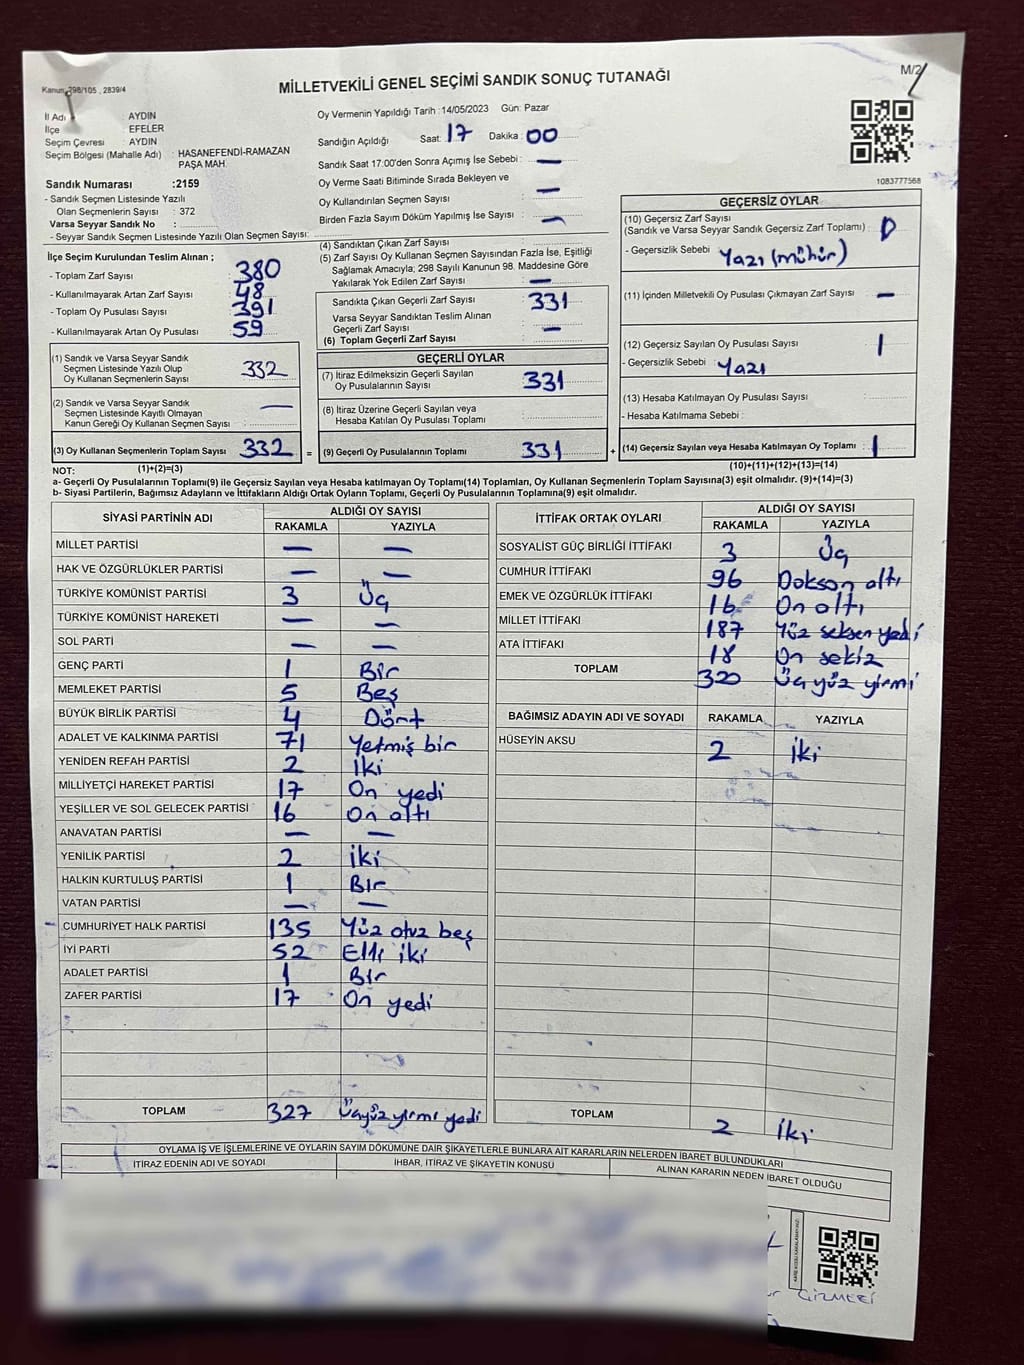 Kanun: 298/105 , 2839/4
MİLLETVEKİLİ GENEL SEÇİMİ SANDIK SONUÇ TUTANAĞI
M/2
İl Adı : AYDIN
İlçe : EFELER
Seçim Çevresi : AYDIN
Seçim Bölgesi (Mahalle Adı) : HASANEFENDİ-RAMAZAN PAŞA MAH.
Sandık Numarası :2159
- Sandık Seçmen Listesinde Yazılı
Olan Seçmenlerin Sayısı : 372
Varsa Seyyar Sandık No :
- Seyyar Sandık Seçmen Listesinde Yazılı Olan Seçmen Sayısı:
Oy Vermenin Yapıldığı Tarih :14/05/2023 Gün: Pazar
Sandığın Açıldığı Saat: 17 Dakika : 00
Sandık Saat 17:00'den Sonra Açımış İse Sebebi : —
Oy Verme Saati Bitiminde Sırada Bekleyen ve
Oy Kullandırılan Seçmen Sayısı : —
Birden Fazla Sayım Döküm Yapılmış İse Sayısı : —
1083777568
İlçe Seçim Kurulundan Teslim Alınan ;
- Toplam Zarf Sayısı : 380
- Kullanılmayarak Artan Zarf Sayısı : 48
- Toplam Oy Pusulası Sayısı : 391
- Kullanılmayarak Artan Oy Pusulası : 59
(1) Sandık ve Varsa Seyyar Sandık
Seçmen Listesinde Yazılı Olup
Oy Kullanan Seçmenlerin Sayısı : 332
(2) Sandık ve Varsa Seyyar Sandık
Seçmen Listesinde Kayıtlı Olmayan
Kanun Gereği Oy Kullanan Seçmen Sayısı : —
(3) Oy Kullanan Seçmenlerin Toplam Sayısı : 332 =
(4) Sandıktan Çıkan Zarf Sayısı :
(5) Zarf Sayısı Oy Kullanan Seçmen Sayısından Fazla İse, Eşitliği
Sağlamak Amacıyla; 298 Sayılı Kanunun 98. Maddesine Göre
Yakılarak Yok Edilen Zarf Sayısı : —
Sandıkta Çıkan Geçerli Zarf Sayısı : 331
Varsa Seyyar Sandıktan Teslim Alınan
Geçerli Zarf Sayısı : —
(6) Toplam Geçerli Zarf Sayısı :
GEÇERLİ OYLAR
(7) İtiraz Edilmeksizin Geçerli Sayılan
Oy Pusulalarının Sayısı : 331
(8) İtiraz Üzerine Geçerli Sayılan veya
Hesaba Katılan Oy Pusulası Toplamı :
(9) Geçerli Oy Pusulalarının Toplamı : 331 +
GEÇERSİZ OYLAR
(10) Geçersiz Zarf Sayısı
(Sandık ve Varsa Seyyar Sandık Geçersiz Zarf Toplamı) :
- Geçersizlik Sebebi : Yazı (mühür)
(11) İçinden Milletvekili Oy Pusulası Çıkmayan Zarf Sayısı : —
(12) Geçersiz Sayılan Oy Pusulası Sayısı : 1
- Geçersizlik Sebebi : Yazı
(13) Hesaba Katılmayan Oy Pusulası Sayısı :
- Hesaba Katılmama Sebebi :
(14) Geçersiz Sayılan veya Hesaba Katılmayan Oy Toplamı : 1
NOT: (1)+(2)=(3) (10)+(11)+(12)+(13)=(14)
a- Geçerli Oy Pusulalarının Toplamı(9) ile Geçersiz Sayılan veya Hesaba Katılmayan Oy Toplamı(14) Toplamları, Oy Kullanan Seçmenlerin Toplam Sayısına(3) eşit olmalıdır. (9)+(14)=(3)
b- Siyasi Partilerin, Bağımsız Adayların ve İttifakların Aldığı Ortak Oyların Toplamı, Geçerli Oy Pusulalarının Toplamına(9) eşit olmalıdır.
SİYASİ PARTİNİN ADI ALDIĞI OY SAYISI
RAKAMLA YAZIYLA
MİLLET PARTİSİ — —
HAK VE ÖZGÜRLÜKLER PARTİSİ — —
TÜRKİYE KOMÜNİST PARTİSİ 3 Üç
TÜRKİYE KOMÜNİST HAREKETİ — —
SOL PARTİ — —
GENÇ PARTİ 1 Bir
MEMLEKET PARTİSİ 5 Beş
BÜYÜK BİRLİK PARTİSİ 4 Dört
ADALET VE KALKINMA PARTİSİ 71 Yetmiş bir
YENİDEN REFAH PARTİSİ 2 İki
MİLLİYETÇİ HAREKET PARTİSİ 17 On yedi
YEŞİLLER VE SOL GELECEK PARTİSİ 16 On altı
ANAVATAN PARTİSİ — —
YENİLİK PARTİSİ 2 İki
HALKIN KURTULUŞ PARTİSİ 1 Bir
VATAN PARTİSİ — —
CUMHURİYET HALK PARTİSİ 135 Yüz otuz beş
İYİ PARTİ 52 Elli iki
ADALET PARTİSİ 1 Bir
ZAFER PARTİSİ 17 On yedi
TOPLAM 327 Üçyüz yirmi yedi
İTTİFAK ORTAK OYLARI ALDIĞI OY SAYISI
RAKAMLA YAZIYLA
SOSYALİST GÜÇ BİRLİĞİ İTTİFAKI 3 Üç
CUMHUR İTTİFAKI 96 Doksan altı
EMEK VE ÖZGÜRLÜK İTTİFAKI 16 On altı
MİLLET İTTİFAKI 187 Yüz seksen yedi
ATA İTTİFAKI 18 On sekiz
TOPLAM 320 Üçyüz yirmi
BAĞIMSIZ ADAYIN ADI VE SOYADI RAKAMLA YAZIYLA
HÜSEYİN AKSU 2 İki
TOPLAM 2 İki
OYLAMA İŞ VE İŞLEMLERİNE VE OYLARIN SAYIM DÖKÜMÜNE DAİR ŞİKAYETLERLE BUNLARA AİT KARARLARIN NELERDEN İBARET BULUNDUKLARI
İTİRAZ EDENİN ADI VE SOYADI İHBAR, İTİRAZ VE ŞİKAYETİN KONUSU ALINAN KARARIN NEDEN İBARET OLDUĞU